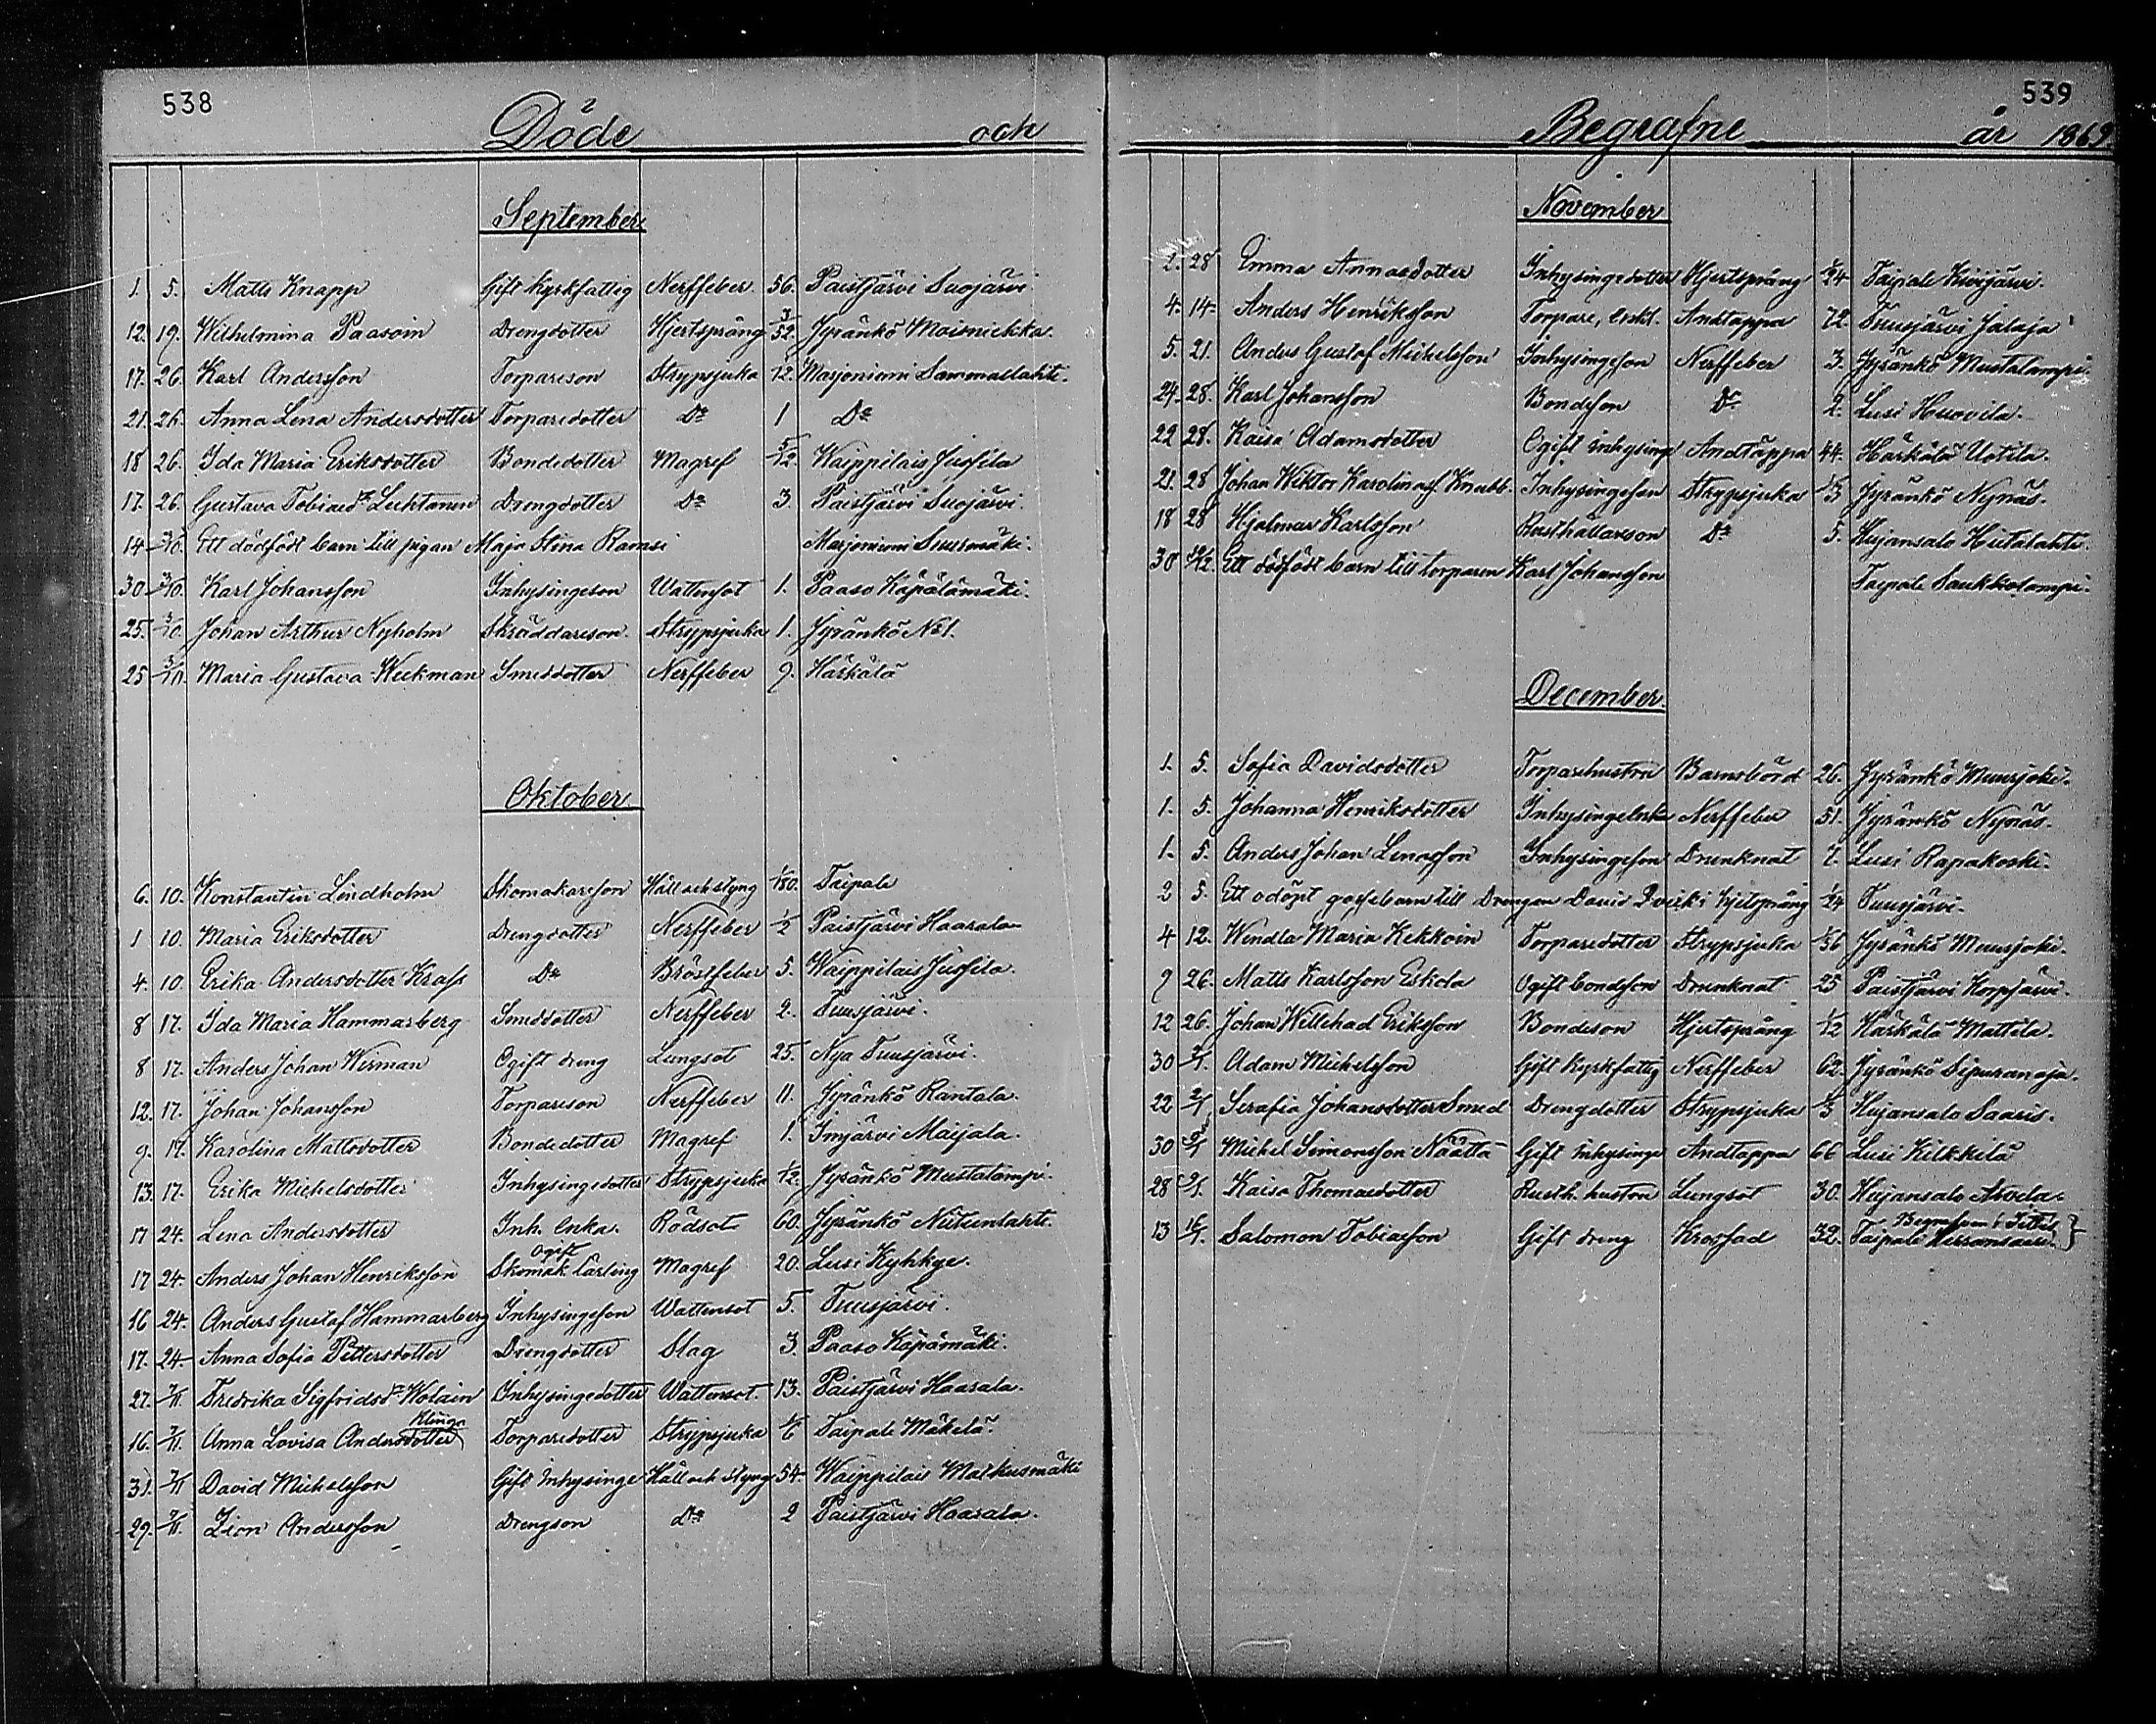 538
Döde och
September
1. 5. Matts Knapp Gift Kyrkfattig Nerffeber. 56. Paistjärvi Suojärvi
12. 19. Wilhelmina Paasoin Drengdotter Hjertsprång 3/52. Jyränkö Moisniekka.
17. 26. Karl Andersson Torpareson Strypsjuka /12. Marjoniemi Sammallahti.
21. 26. Anna Lena Andersdotter Torparedotter Do 1 Do
18 26. Ida Maria Eriksdotter Bondedotter Magref 5/12. Waippilais Jussila
17. 26. Gustava Tobiaed. Lehtanen Drengdotter Do 3. Paistjärvi Suojärvi.
14 3/10. Ett dödfödt barn till pigan Maja Stina Ramsi Marjoniemi Suurmäki.
30 3/10. Karl Johansson Inhysingeson Wattensot 1. Paaso Käpälämäki.
25. 3/10. Johan Arthur Nyholm Skräddareson. Strypsjuka 1. Jyränkö No 1.
25 3/10. Maria Gustava Weckman Smeddotter Nerffeber 9. Härkälä
Oktober
6. 10. Konstantin Lindholm Skomakareson Håll och styng 1/180. Taipale
1 10. Maria Eriksdotter Drengdotter Nerffeber 1/2 Paistjärvi Haarala
4. 10. Erika Andersdotter Krass Do Bröstfeber 5. Waippilais Jussila.
8 17. Ida Maria Hammarberg Smeddotter Nerffeber 2. Tuusjärvi.
8 17. Anders Johan Werman Ogift dreng Lungsot 25. Nya Tuusjärvi.
12. 17. Johan Johansson Torpareson Nerffeber 11. Jyränkö Rantala.
9. 17. Karolina Mattsdotter Bondedotter Magref 1. Imjärvi Maijala.
13. 17. Erika Michelsdotter Inhysingedotter Strypsjuka 1/12. Jyränkö Mustalampi.
17 24. Lena Andersdotter Inh. enka. Rödsot 60. Jyränkö Niitunlahti.
17 24. Anders Johan Henriksson Ogift Skomak. Lärling Magref 20. Lusi Kyhkye.
16 24. Anders Gustaf Hammarberg Inhysingeson Wattensot 5. Tuusjärvi.
17. 24. Anna Sofia Pettersdotter Drengdotter Slag 3. Paaso Käpämäki.
27. 7/11. Fredrika Sigfridsd. Wolain Inhysingedotter Wattensot. 13. Paistjärvi Haarala.
16. 7/11. Anna Lovisa Andersdotter Klinga Torparedotter Strypsjuka 1/6 Taipale Mäkelä.
31. 7/11 David Michelsson Gift Inhysinge Håll och styng 54. Waippilais Markusmäki
29. 7/11. Zion Andersson Drengson Do 2 Paistjärvi Haarala.
539
Begrafne år 1869
November
2. 28 Emma Annasdotter Inhysingedotter Hjertsprång 1/24 Taipale Kivijärvi.
4. 14. Anders Henriksson Torpare, enkl. Andtäppa 72. Tuusjärvi Jalaja
5. 21. Anders Gustaf Michelsson Inhysingeson Nerffeber 3. Jyränkö Mustalampi.
24. 28. Karl Johansson Bondeson Do 2. Lusi Huovila.
22 28. Kaisa Adamsdotter Ogift inhysinge Andtäppa 44. Härkälä Uotila.
21. 28 Johan Wiktor Karolinas. Knubb. Inhysingeson Strypsjuka 3 Jyränkö Nynäs.
18 28 Hjalmar Karlsson Rusthållareson Do 5. Hujansalo Hietalahti.
30 12. Ett dödfödt barn till torparen Karl Johansson Taipale Saukkolampi.
December
1. 5. Sofia Davidsdotter Torparehustru Barnsbörd 26. Jyränkö Muurjoki.
1. 5. Johanna Henriksdotter Inhysingeenka Nerffeber 51. Jyränkö Nynäs.
1. 5. Anders Johan Lenasson Inhysingeson Drunknat 7. Lusi Rapakoski.
2 5. Ett odöpt gossebarn till Drengen David i hjertsprång 1/24 Tuusjärvi.
4 12. Wendla Maria Kekkoin Torparedotter Strypsjuka 1/36 Jyränkö Muurjoki.
9 26. Matts Karlsson Eskola Ogift bondeson Drunknat 25 Paistjärvi Korpjärvi.
12 26. Johan Willehad Eriksson Bondeson Hjertsprång 1/12 Härkälä Mattila.
30 2/1. Adam Michelsson Gift Kyrkfattig Nerffeber 62. Jyränkö Sipuranoja.
22 2/1. Serafia Johansdotter Smed Drengdotter Strypsjuka 1/3 Hujansalo Saaris.
30 2/1 Michel Simonsson Näätta Gift inhysinge Andtäppa 66 Lusi Kilkkilä
28 2/1. Kaisa Thomaedotter Rusth. hustru Lungsot 30. Hujansalo Arvila.
13 16/1. Salomon Tobiasson Gift dreng Krossad 32. Taipale Wirransaari. Begrafven i Sittis